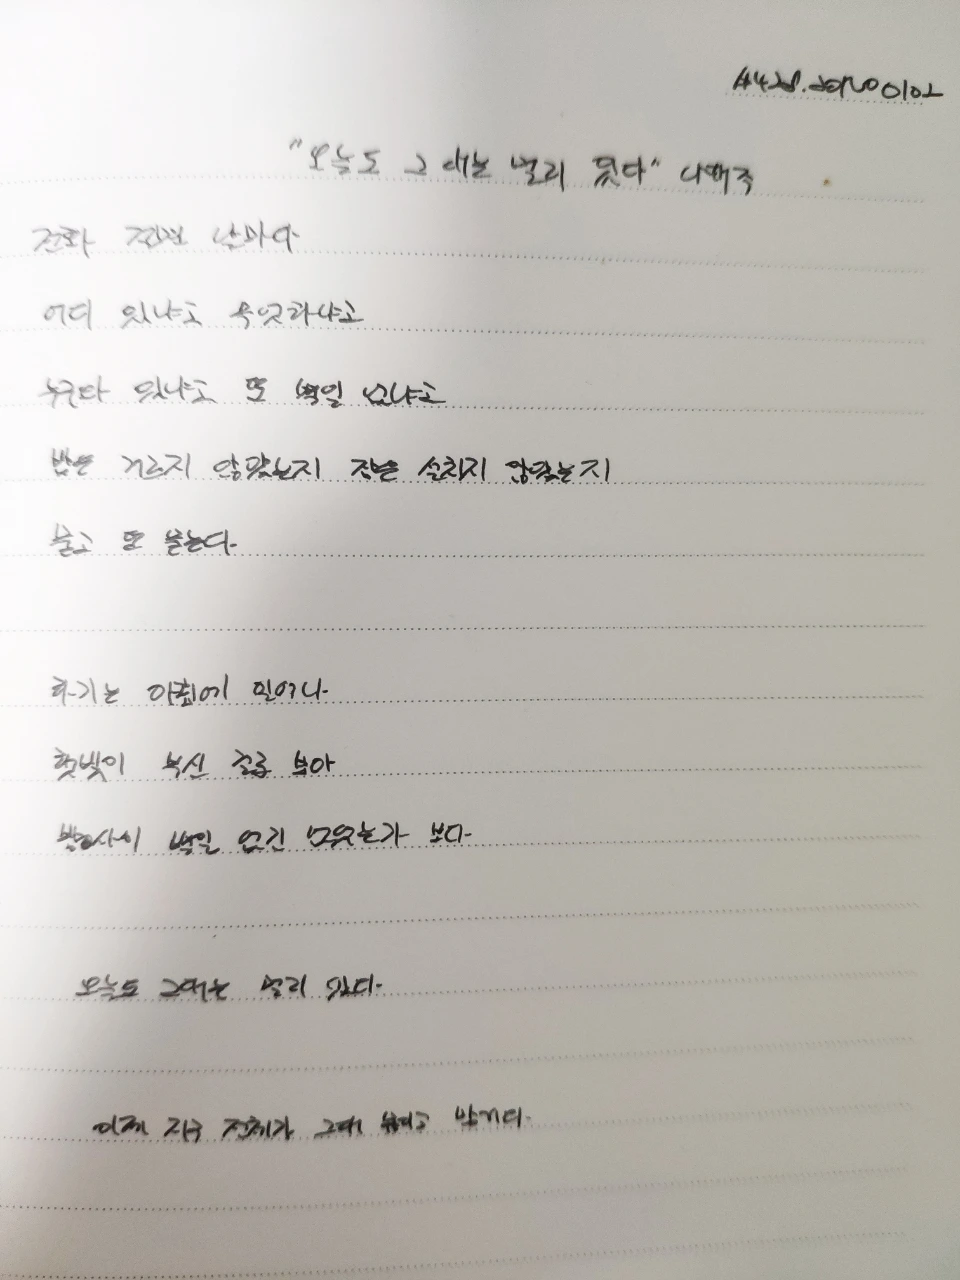 "오늘도 그대는 멀리 있다" 나태주
전화 걸면 날마다
어디 있냐고 무엇하냐고
누구랑 있냐고 또 별일 없냐고
밥은 거르지 않았는지 잠은 설치지 않았는지
묻고 또 묻는다.
하기는 아침에 일어나
햇빛이 부신 걸로 보아
밤사이 별일 없긴 없었는가 보다.
오늘도 그대는 멀리 있다.
이제 지구 전체가 그대 몸이고 맘이다.